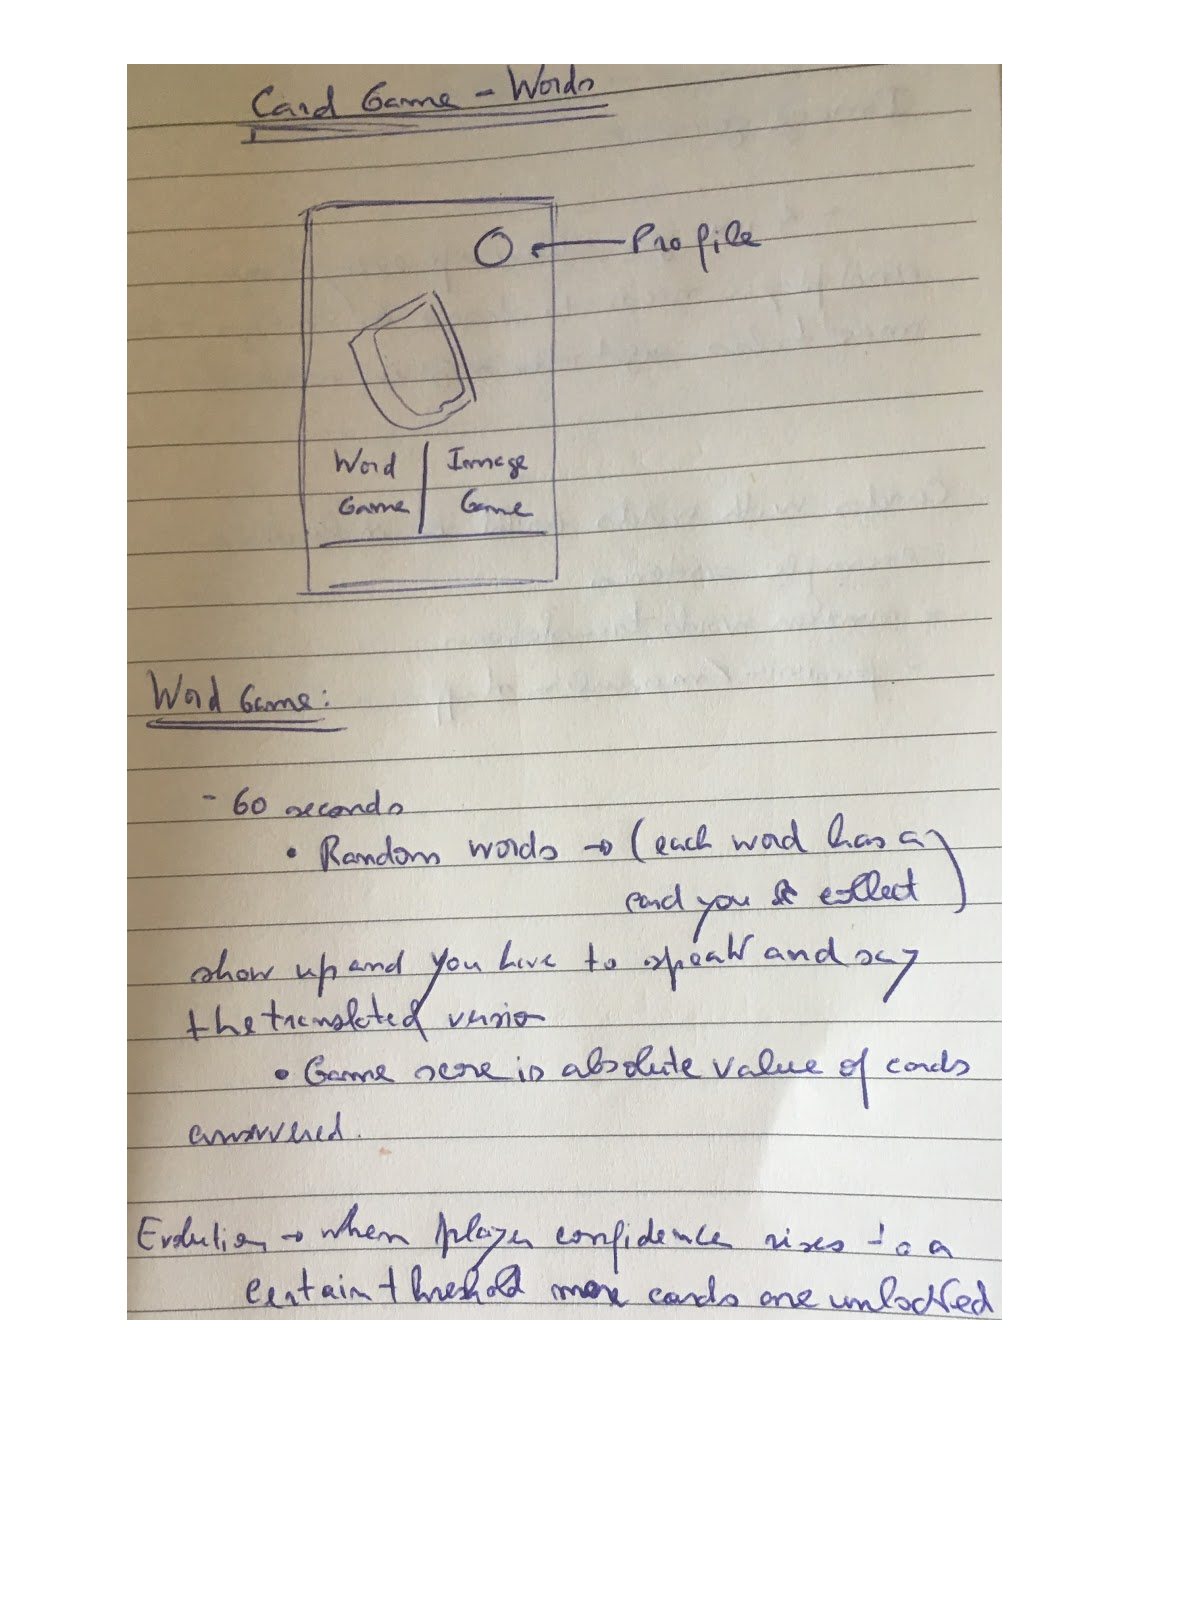 Card Game - Words
Profile
Word | Image
Game | Game
Word Game:
- 60 seconds
• Random words → (each word has a
card you collect)
show up and you have to speak and say
the translated version
• Game score is absolute value of cards
answered.
Evolution → when player confidence rises to a
certain threshold more cards are unlocked